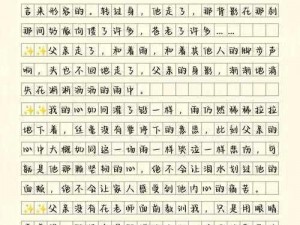 言来形容的。转过身，他走了，那背影在那刹
那间仿佛佝偻了许多，苍老了许多……
✨父亲走了，和着雨，和着其他人的脚步声
响，头也不回地走了，父亲的身影，渐渐地消
失在淅淅沥沥的雨中。
✨我的心如同灌了铅一样，雨仍然稀稀拉拉
地下着，丝毫没有要停下的意思，此刻父亲的
心中大概如同这一场雨一样烦淀一样悲雨，可
就是他那颗坚韧的心，他不会让泪水划过他的
面颊，他不会让家人感受到他内心的痛苦。
✨父亲没有在老师面前教训我，只是用眼睛